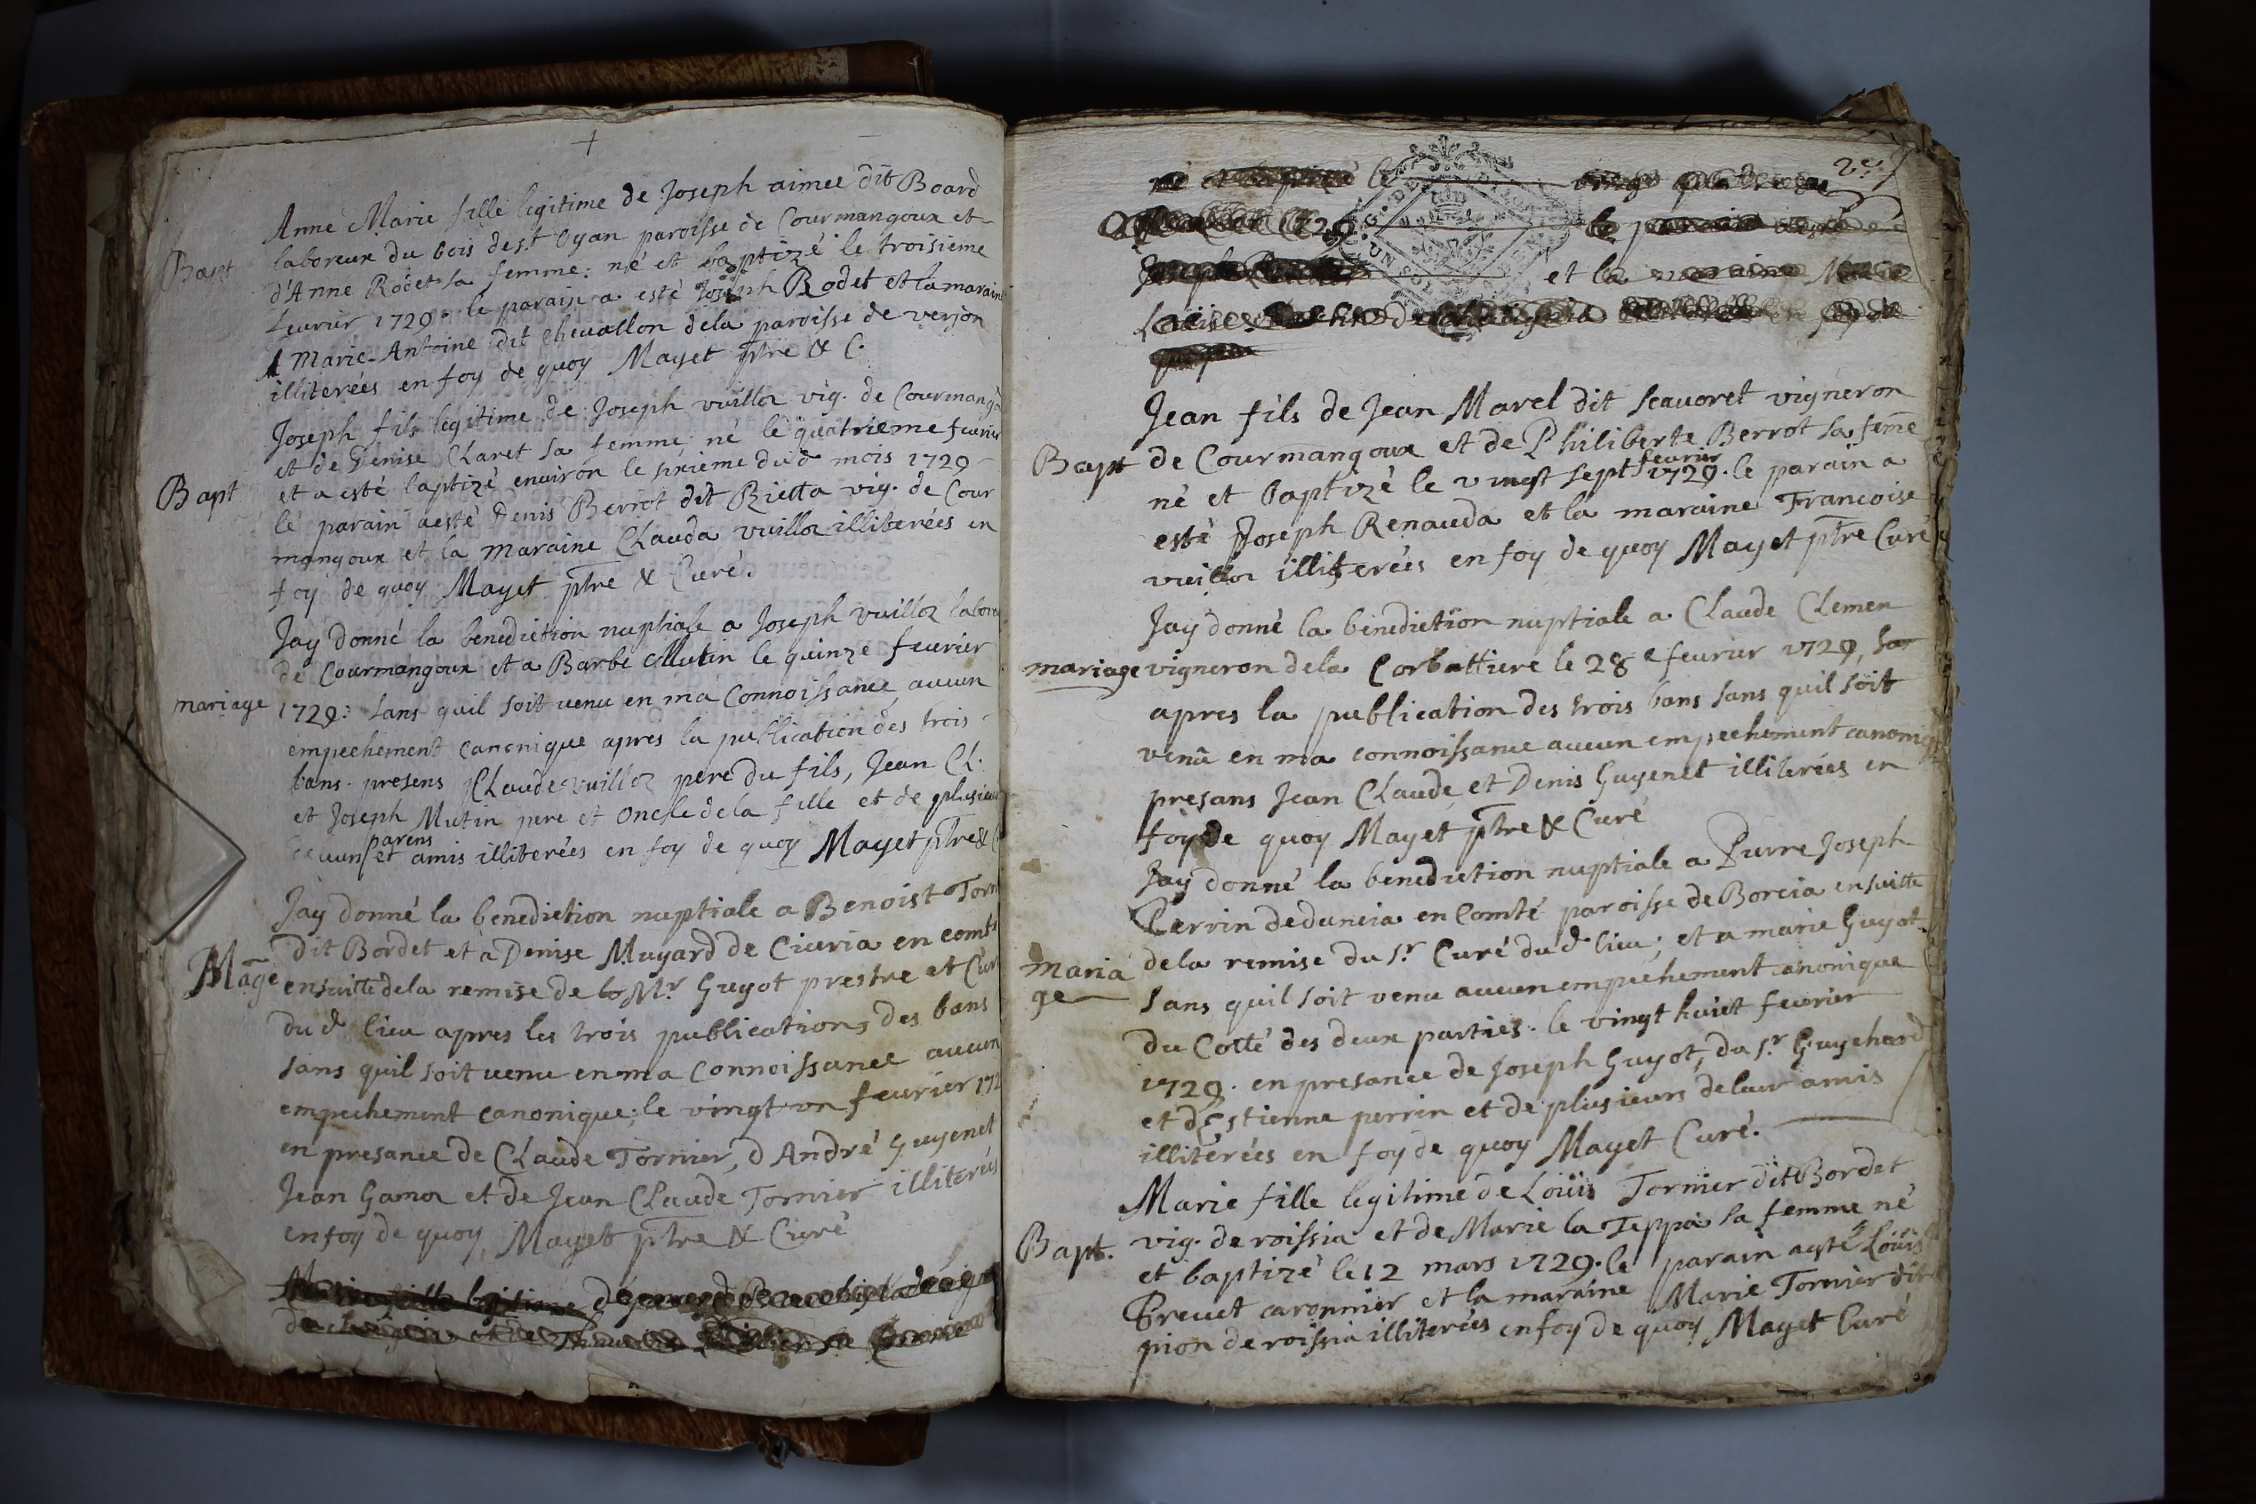 Anne Marie fille legitime de Joseph aimee dit Board
laboreur du bois de st Oyan paroisse de Courmangoux et
Bapt
d'Anne Rodet sa femme: né et baptizé le troisieme
fevrier 1729. le parain a esté Joseph Rodet et la maraine
Marie-Antoine dit chevallon dela paroisse de verjon
illiterées en foy de quoy Mayet ptre & C.
Joseph fils legitime de Joseph vuilloz vig. de Courmangou
et de Denise Claret sa femme né le quatrieme fevrier
Bapt
et a esté baptizé environ le sixieme dud mois 1729
le parain a esté Denis Berrot dit Rietta vig. de Cour
mangoux et la maraine Clauda vuilloz illiterées en
foy de quoy Mayet ptre & Curé.
Jay donné la benediction nuptiale a Joseph vuilloz labore
de Courmangoux et a Barbe Mutin le quinze fevrier
mariage
1729: sans quil soit venu en ma Connoissance aucun
empechement canonique apres la publication des trois
bans. presens Claude vuilloz pere du fils, Jean Cl.
et Joseph Mutin pere et oncle dela fille et de plusieu
parens
et amis illiterées en foy de quoy Mayet ptre & C
Jay donné la benediction nuptiale a Benoist Torn
dit Bordet et a Denise Muyard de Civria en comté
Mage
ensuitte dela remise de Mr Guyot prestre et Curé
du d lieu apres les trois publications des bans
sans quil soit venu en ma Connoissance aucun
empechement canonique; le vingt un fevrier 172
en presance de Claude Tornier, d André Guyenet
Jean Gamoz et de Jean Claude Tornier illiterées
en foy de quoy Mayet ptre & Curé
fille legitime
2e
le
1729
le
et la maraine
Jean fils de Jean Marel dit scavoret vigneron
Bapt
de Courmangoux et de Philiberte Berrot sa feme
fevrier
né et baptizé le vingt sept 1729. le parain a
esté Joseph Renauda et la maraine Francoise
vuilloz illiterées en foy de quoy Mayet ptre Curé
Jay donné la benediction nuptiale a Claude Clemen
mariage
vigneron dela Corbattiere le 28e fevrier 1729,
apres la publication des trois bans sans quil soit
venu en ma connoissance aucun empechement canoniq
presans Jean Claude et Denis Guyenet illiterées en
foy de quoy Mayet ptre & Curé
Jay donné la benediction nuptiale a Pierre Joseph
Perrin de duncia en Comté paroisse de Borcia ensuitte
maria
ge
dela remise du sr. Curé du d lieu; et a marie Guyot
sans quil soit venu aucun empechement canonique
du Cotté des deux parties. le vingt huict fevrier
1729. en presance de Joseph Guyot, du sr Guychard
et d Estienne perrin et de plusieurs de leur amis
illiterées en foy de quoy Mayet Curé.
Marie fille legitime de Loüis Tornier dit Bordet
Bapt.
vig. de roissia et de Marie la Teppa sa femme né
et baptizé le 12 mars 1729. le parain a esté Loüis
Prevet caronnier et la maraine Marie Tornier dit
pion de roissia illiterées en foy de quoy Mayet Curé